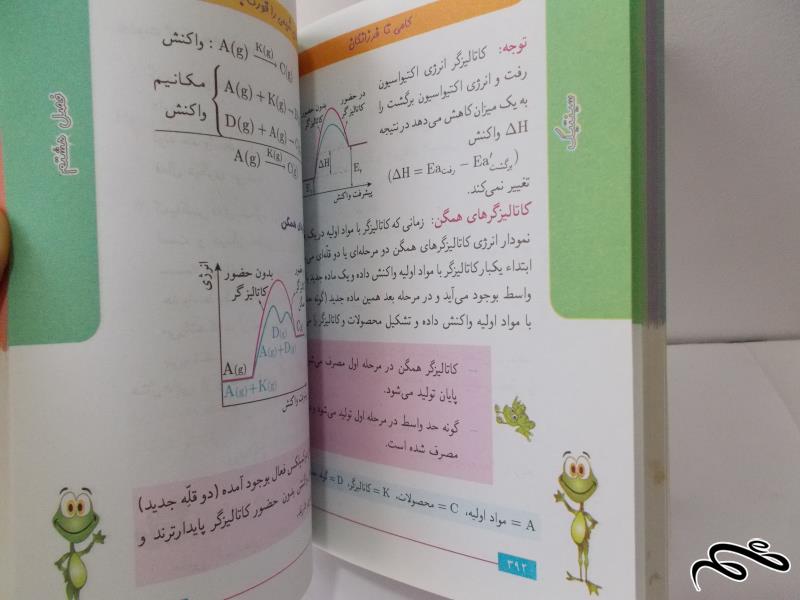 گامی تا فرزانگان
توجه: کاتالیزگر انرژی اکتیواسیون
رفت و انرژی اکتیواسیون برگشت را
به یک میزان کاهش می‌دهد در نتیجه
ΔH واکنش
(ΔH = Ea رفت − Ea′ برگشت)
تغییر نمی‌کند.
بدون حضور کاتالیزگر
در حضور کاتالیزگر
ΔH
پیشرفت واکنش
کاتالیزگرهای همگن: زمانی که کاتالیزگر با مواد اولیه در یک
نمودار انرژی کاتالیزگرهای همگن دو مرحله‌ای یا دو قله‌ای
ابتداء یکبار کاتالیزگر با مواد اولیه واکنش داده و یک ماده جدید
واسط بوجود می‌آید و در مرحله بعد همین ماده جدید (گونه
با مواد اولیه واکنش داده و تشکیل محصولات و کاتالیزگر را
کاتالیزگر همگن در مرحله اول مصرف
پایان تولید می‌شود.
گونه حد واسط در مرحله اول تولید می‌شود و
مصرف شده است.
A = مواد اولیه، C = محصولات، K = کاتالیزگر، D =
۳۹۲
سینتیک
فصل هشتم
واکنش : A(g) K(g) → C(g)
مکانیم واکنش
A(g) + K(g) →
D(g) + A(g) →
A(g) K(g) → C(g)
همگن
انرژی
بدون حضور
کاتالیزگر
D(g)
A(g)+D(g)
A(g)
A(g)+K(g)
فعال بوجود آمده (دو قلّه جدید)
بدون حضور کاتالیزگر پایدارترند و